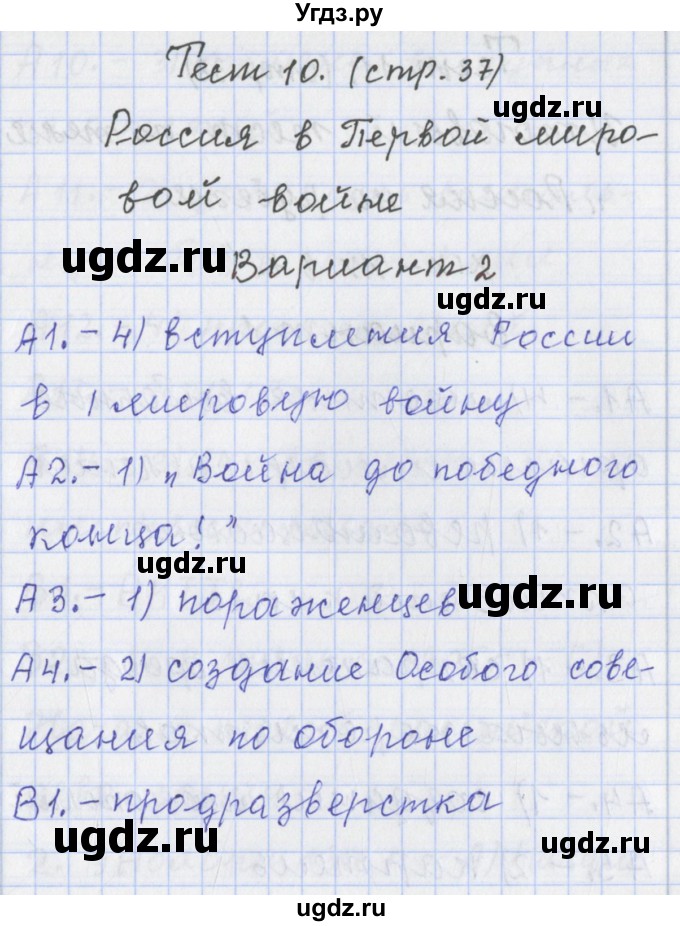 Угдз.ру
Тест 10. (стр. 37)
ugdz.ru
Россия в Первой миро-
вой войне
ugdz.ru
Вариант 2
ugdz.ru
А1. - 4) вступления России
в 1 мировую войну
А2. - 1) „Война до победного
конца!"
ugdz.ru
А3. - 1) пораженцев
ugdz.ru
А4. - 2) создание Особого сове-
щания по обороне
В1. - продразверстка
ugdz.ru
ugdz.ru
ugdz.ru